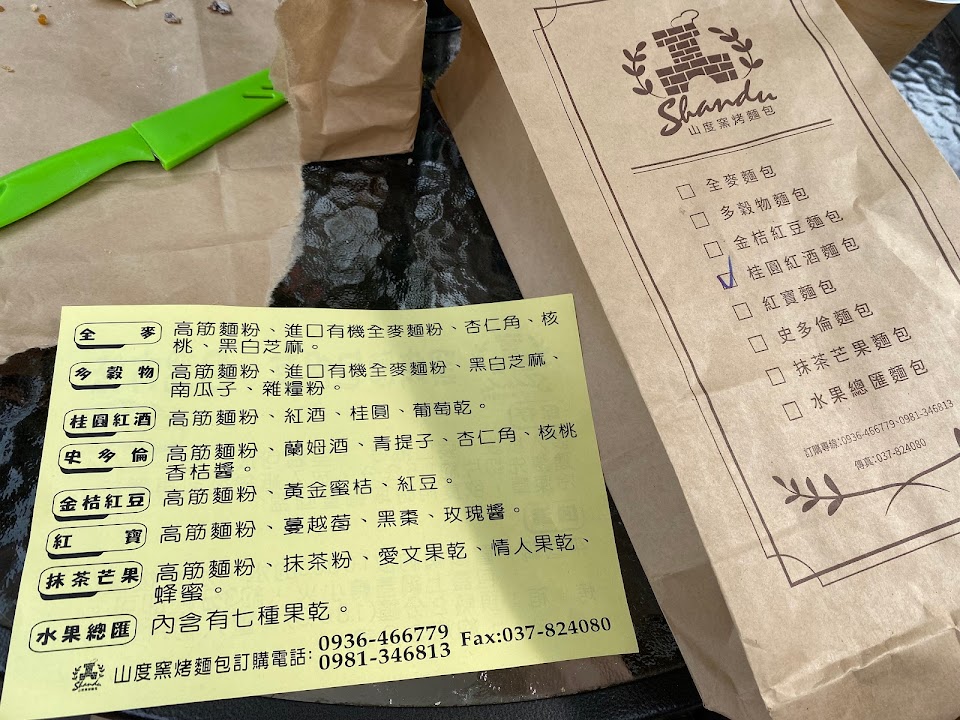 Shandu
山度窯烤麵包
全麥麵包
多穀物麵包
金桔紅豆麵包
桂圓紅酒麵包
紅寶麵包
史多倫麵包
抹茶芒果麵包
水果總匯麵包
訂購專線:0936-466779‧0981-346813
傳真:037-824080
全麥 高筋麵粉、進口有機全麥麵粉、杏仁角、核
桃、黑白芝麻。
多穀物 高筋麵粉、進口有機全麥麵粉、黑白芝麻、
南瓜子、雜糧粉。
桂圓紅酒 高筋麵粉、紅酒、桂圓、葡萄乾。
史多倫 高筋麵粉、蘭姆酒、青提子、杏仁角、核桃
香桔醬。
金桔紅豆 高筋麵粉、黃金蜜桔、紅豆。
紅寶 高筋麵粉、蔓越莓、黑棗、玫瑰醬。
抹茶芒果 高筋麵粉、抹茶粉、愛文果乾、情人果乾、
蜂蜜。
水果總匯 內含有七種果乾。
Shandu
山度窯烤麵包訂購電話: 0936-466779 Fax:037-824080
0981-346813